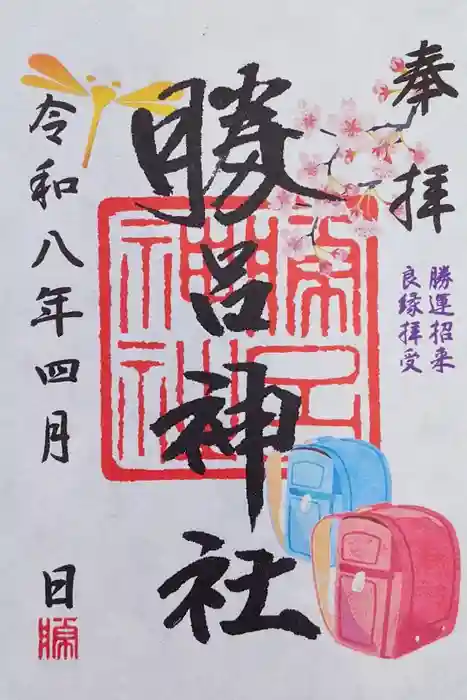 奉拝
勝運招来
良縁拝受
勝呂神社
令和八年四月 日